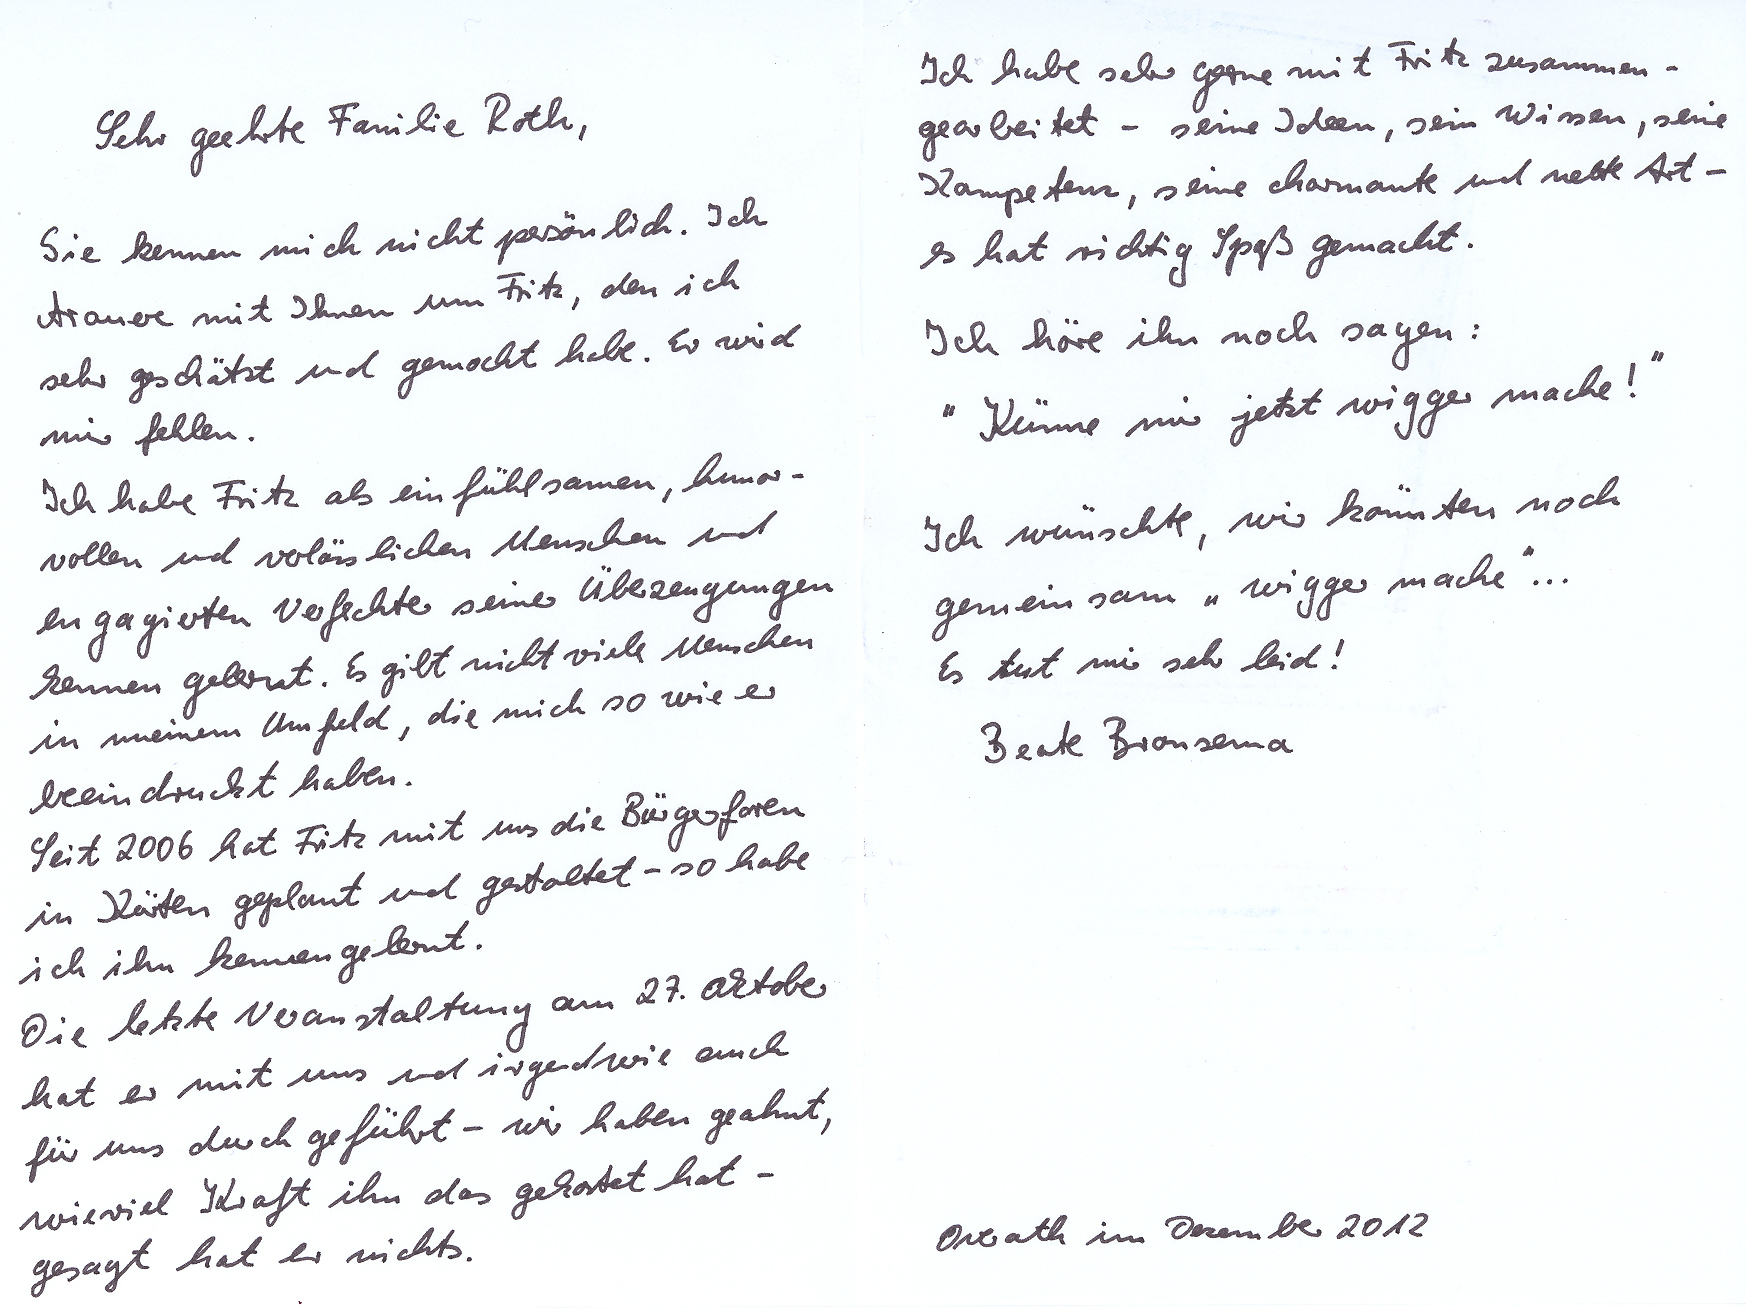 Sehr geehrte Familie Roth,
Sie kennen mich nicht persönlich. Ich
trauere mit Ihnen um Fritz, den ich
sehr geschätzt und gemocht habe. Er wird
mir fehlen.
Ich habe Fritz als einfühlsamen, humor-
vollen und verlässlichen Menschen und
engagierten Verfechter seiner Überzeugungen
kennen gelernt. Es gibt nicht viele Menschen
in meinem Umfeld, die mich so wie er
beeindruckt haben.
Seit 2006 hat Fritz mit uns die Bürgerforen
in Kürten geplant und gestaltet – so habe
ich ihn kennengelernt.
Die letzte Veranstaltung am 27. Oktober
hat er mit uns und irgendwie auch
für uns durchgeführt – wir haben geahnt,
wieviel Kraft ihn das gekostet hat –
gesagt hat er nichts.
Ich habe sehr gerne mit Fritz zusammen-
gearbeitet – seine Ideen, sein Wissen, seine
Kompetenz, seine charmante und nette Art –
es hat richtig Spaß gemacht.
Ich höre ihn noch sagen:
"Künne mir jetzt wigger mache!"
Ich wünschte, wir könnten noch
gemeinsam „wigger mache"...
Es tut mir sehr leid!
Beate Bronsema
Overath im Dezember 2012